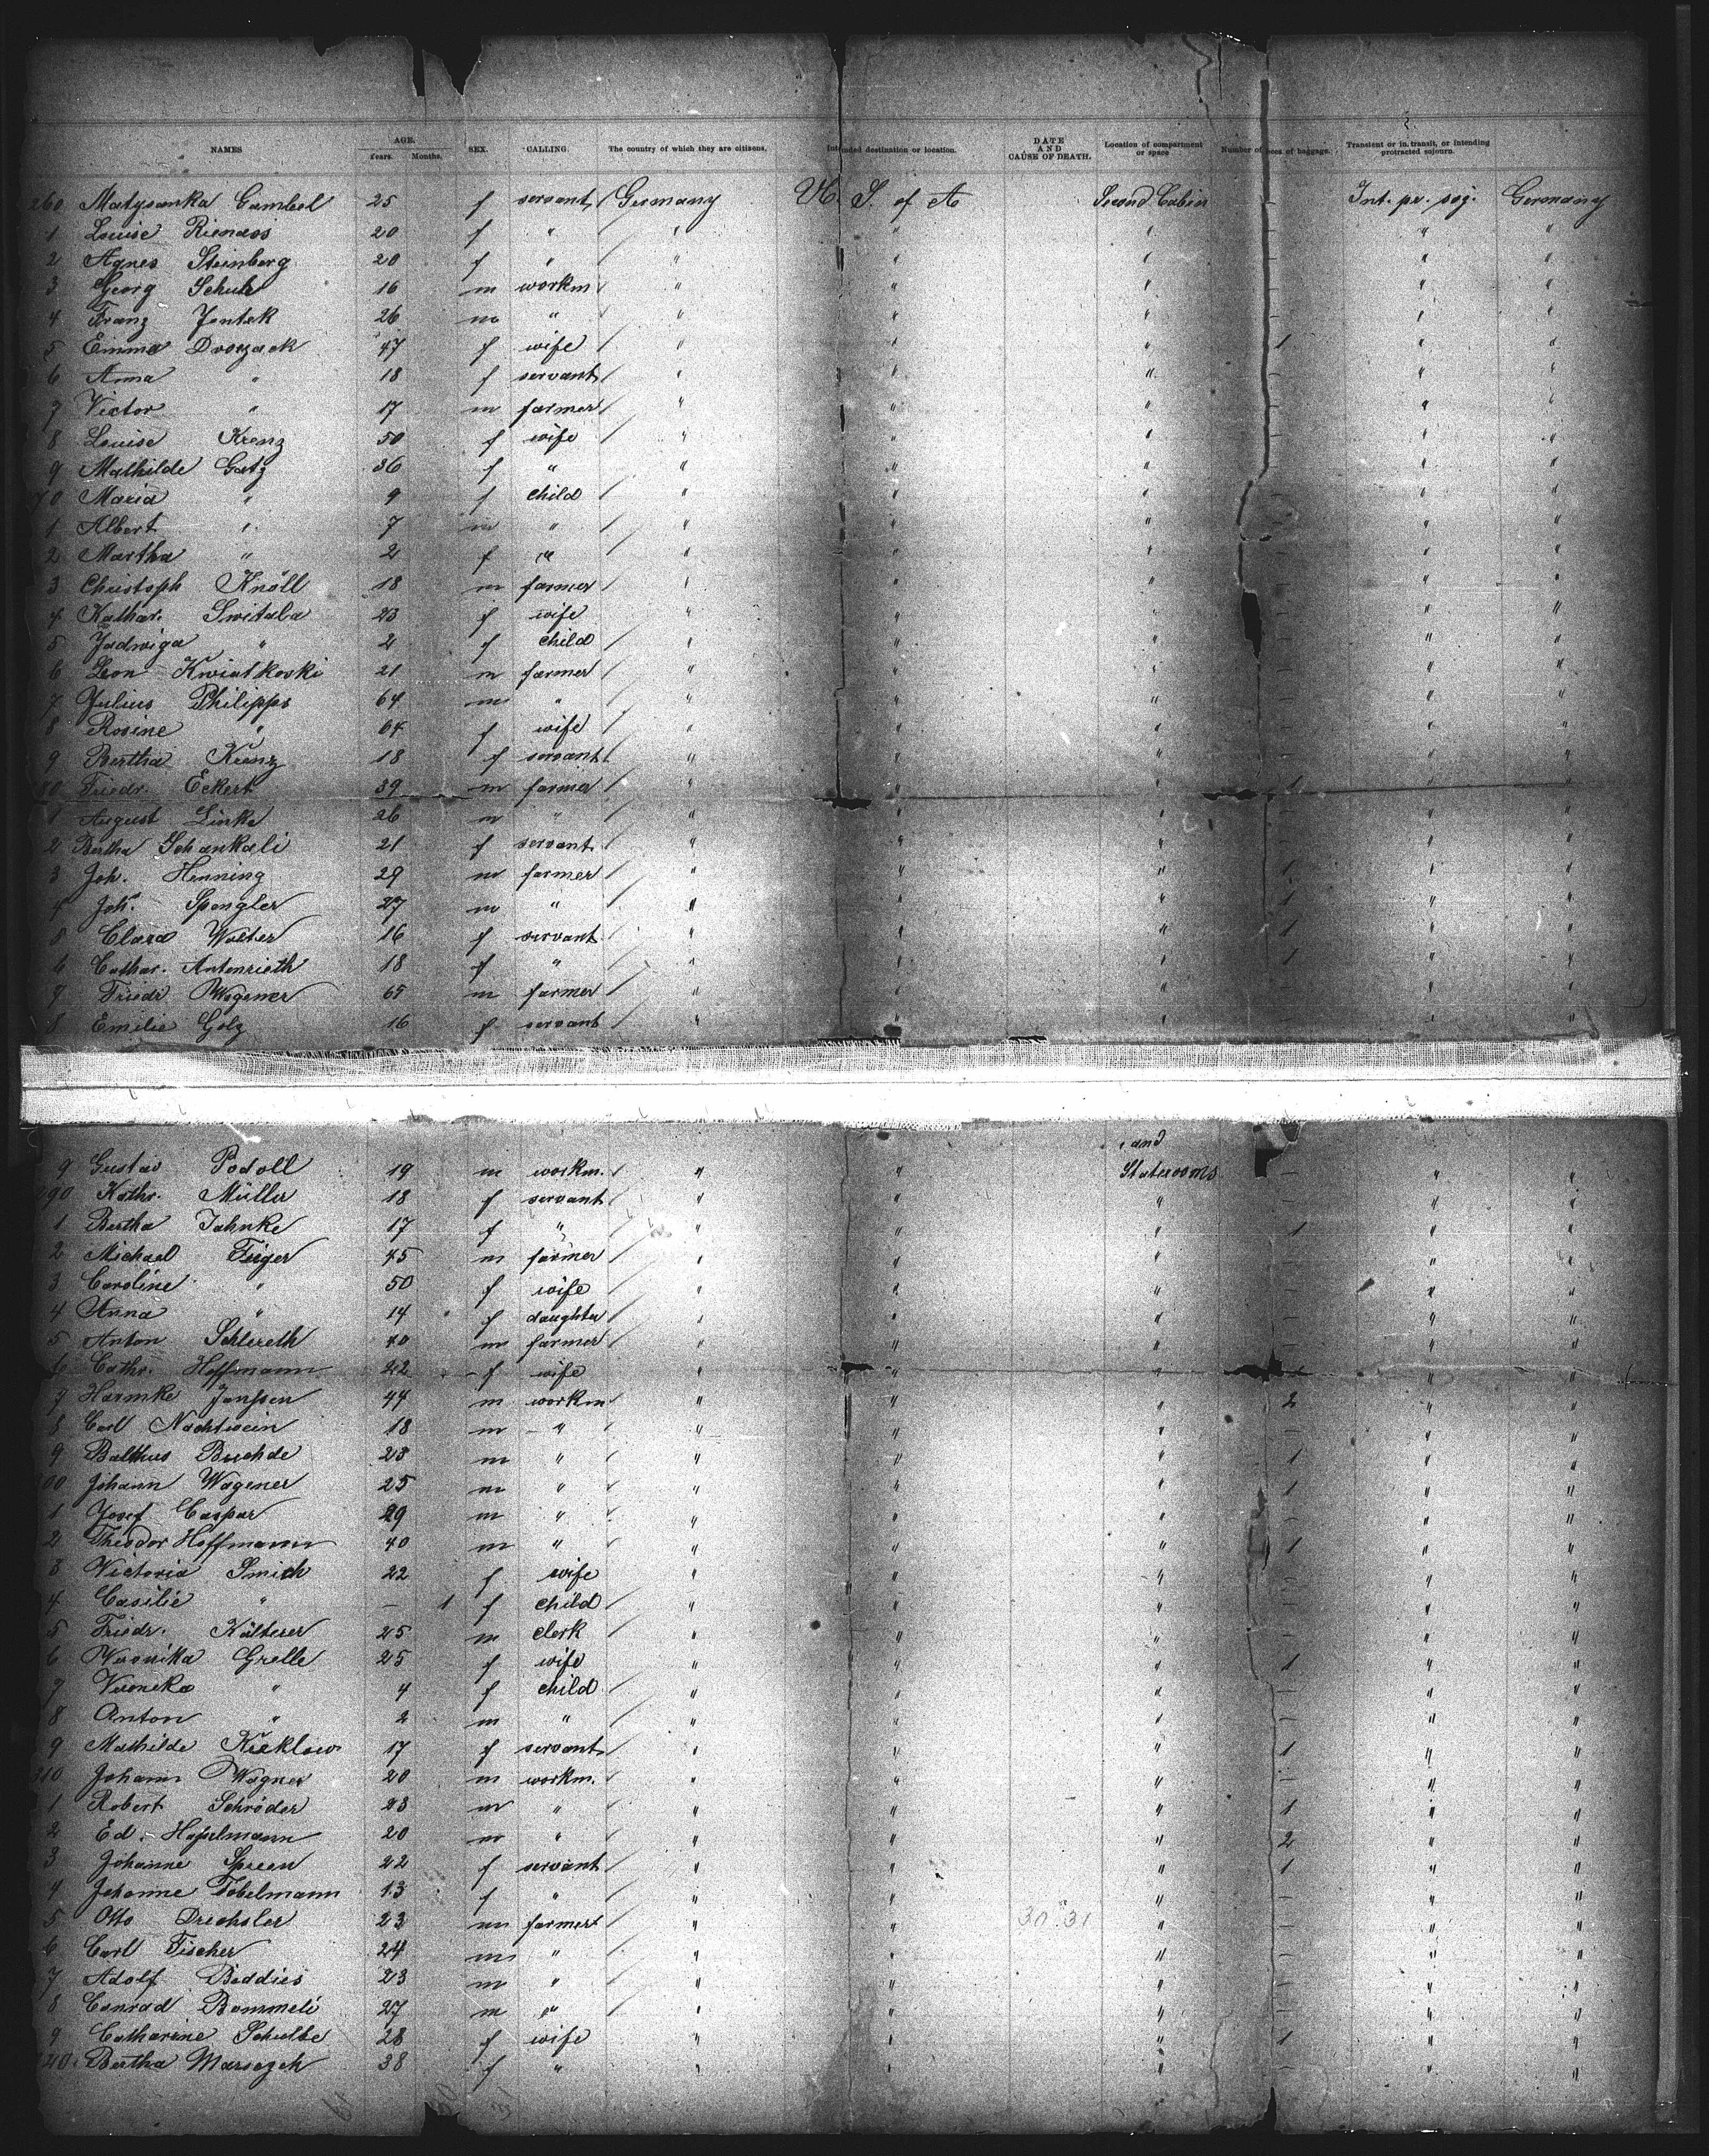 NAMES AGE. Years. Months. SEX. CALLING. The country of which they are citizens. Intended destination or location. DATE AND CAUSE OF DEATH. Location of compartment or space Number of pieces of baggage. Transient or in transit, or intending protracted sojourn.
260 Matysanka Gambol 25 f servant Germany U. S. of A Second Cabin - Int. pr. soj. Germany
1 Louise Rienass 20 f " " " " - " "
2 Agnes Steinberg 20 f " " " " - " "
3 Georg Schulz 16 m workm " " " - " "
4 Franz Jentek 26 m " " " " - " "
5 Emma Dvorzack 47 f wife " " " 1 " "
6 Anna " 18 f servant " " " - " "
7 Victor " 17 m farmer " " " - " "
8 Louise Krenz 50 f wife " " " - " "
9 Mathilde Gatz 36 f " " " " - " "
70 Maria " 9 f child " " " - " "
1 Albert " 7 m " " " " - " "
2 Martha " 2 f " " " " - " "
3 Christoph Knöll 18 m farmer " " " - " "
4 Kathar. Switala 23 f wife " " " - " "
5 Jadwiga " 2 f child " " " - " "
6 Leon Kwiatkovki 21 m farmer " " " - " "
7 Julius Philipps 64 m " " " " - " "
8 Rosine " 64 f wife " " " - " "
9 Bertha Krenz 18 f servant " " " - " "
80 Friedr. Eckert 39 m farmer " " " 1 " "
1 August Linke 26 m " " " " - " "
2 Bertha Schankali 21 f servant " " " - " "
3 Joh. Henning 29 m farmer " " " 1 " "
4 Joh. Spengler 27 m " " " " 1 " "
5 Clara Walter 16 f servant " " " 1 " "
6 Cathar. Antenrieth 18 f " " " " 1 " "
7 Friedr Wagener 65 m farmer " " " - " "
8 Emilie Golz 16 f servant " " " - " "
and
9 Gustav Podoll 19 m workm. " " Staterooms - " "
290 Kathr. Müller 18 f servant " " " - " "
1 Bertha Jahnke 17 f " " " " 1 " "
2 Michael Fieger 45 m farmer " " " - " "
3 Caroline " 50 f wife " " " - " "
4 Anna " 14 f daughter " " " - " "
5 Anton Schlereth 40 m farmer " " " - " "
6 Cathr. Hoffmann 22 f wife " " " " "
7 Harmke Janssen 44 m workm " " " 2 " "
8 Carl Nachtwein 18 m " " " " - " "
9 Balthus Buchde 23 m " " " " 1 " "
300 Johann Wagener 25 m " " " " 1 " "
1 Josef Caspar 29 m " " " " - " "
2 Theodor Hoffmann 40 m " " " " 1 " "
3 Victoria Smich 22 f wife " " " - " "
4 Casilie " - 1 f child " " " - " "
5 Friedr. Kälterer 25 m clerk " " " - " "
6 Weronika Grelle 25 f wife " " " 1 " "
7 Veronika " 4 f child " " " - " "
8 Anton " 2 m " " " " - " "
9 Mathilde Kicklow 17 f servant " " " 1 " "
310 Johann Wagner 20 m workm. " " " - " "
1 Robert Schröder 23 m " " " " 1 " "
2 Ed. Hasselmann 20 m " " " " 2 " "
3 Johanne Spreen 22 f servant " " " 1 " "
4 Johanne Tobelmann 13 f " " " " - " "
5 Otto Drechsler 23 m farmer " " 30 31 " - " "
6 Carl Fischer 24 m " " " " - " "
7 Adolf Beddies 23 m " " " " - " "
8 Conrad Bommeli 27 m " " " " - " "
9 Catharine Schulte 28 f wife " " " 1 " "
320. Bertha Marsezch 38 f " " " " - " "